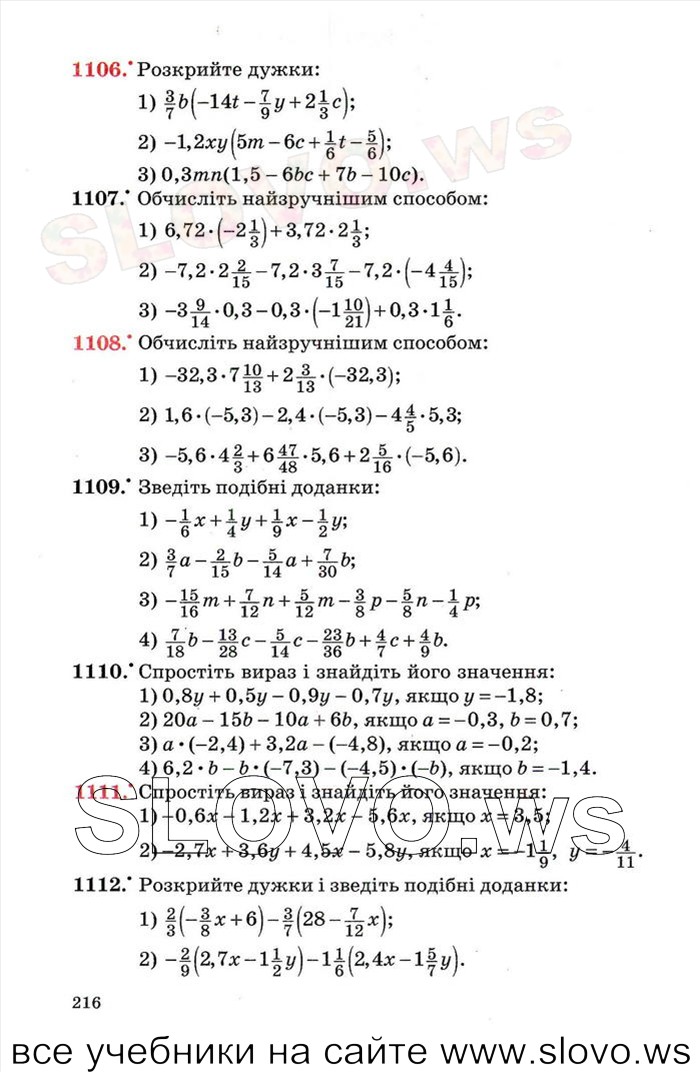 1106.• Розкрийте дужки:
1) 3/7 b(−14t − 7/9 y + 2 1/3 c);
2) −1,2xy(5m − 6c + 1/6 t − 5/6);
3) 0,3mn(1,5 − 6bc + 7b − 10c).
1107.• Обчисліть найзручнішим способом:
1) 6,72 · (−2 1/3) + 3,72 · 2 1/3;
2) −7,2 · 2 2/15 − 7,2 · 3 7/15 − 7,2 · (−4 4/15);
3) −3 9/14 · 0,3 − 0,3 · (−1 10/21) + 0,3 · 1 1/6.
1108.• Обчисліть найзручнішим способом:
1) −32,3 · 7 10/13 + 2 3/13 · (−32,3);
2) 1,6 · (−5,3) − 2,4 · (−5,3) − 4 4/5 · 5,3;
3) −5,6 · 4 2/3 + 6 47/48 · 5,6 + 2 5/16 · (−5,6).
1109.• Зведіть подібні доданки:
1) −1/6 x + 1/4 y + 1/9 x − 1/2 y;
2) 3/7 a − 2/15 b − 5/14 a + 7/30 b;
3) −15/16 m + 7/12 n + 5/12 m − 3/8 p − 5/8 n − 1/4 p;
4) 7/18 b − 13/28 c − 5/14 c − 23/36 b + 4/7 c + 4/9 b.
1110.• Спростіть вираз і знайдіть його значення:
1) 0,8y + 0,5y − 0,9y − 0,7y, якщо y = −1,8;
2) 20a − 15b − 10a + 6b, якщо a = −0,3, b = 0,7;
3) a · (−2,4) + 3,2a − (−4,8), якщо a = −0,2;
4) 6,2 · b − b · (−7,3) − (−4,5) · (−b), якщо b = −1,4.
1111.• Спростіть вираз і знайдіть його значення:
1) −0,6x − 1,2x + 3,2x − 5,6x, якщо x = 3,5;
2) −2,7x + 3,6y + 4,5x − 5,8y, якщо x = −1 1/9, y = −4/11.
1112.• Розкрийте дужки і зведіть подібні доданки:
1) 2/3(−3/8 x + 6) − 3/7(28 − 7/12 x);
2) −2/9(2,7x − 1 1/2 y) − 1 1/6(2,4x − 1 5/7 y).
216
SLOVO.ws
SLOVO.ws
все учебники на сайте www.slovo.ws